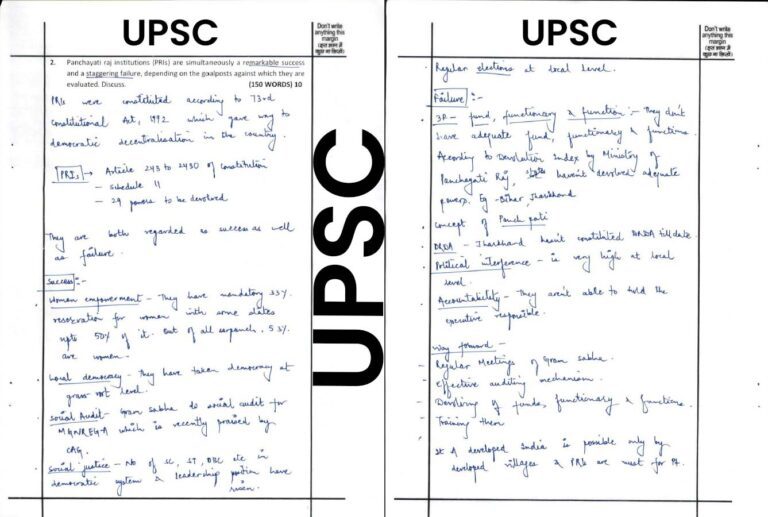 UPSC
Don't write
anything this
margin
(इस भाग में
कुछ ना लिखें)
2. Panchayati raj institutions (PRIs) are simultaneously a remarkable success
and a staggering failure, depending on the goalposts against which they are
evaluated. Discuss. (150 WORDS) 10
PRIs were constituted according to 73rd
Constitutional Act, 1992 which gave way to
democratic decentralisation in the country.
PRIs → Article 243 to 243O of constitution
— schedule 11
— 29 powers to be devolved
They are both regarded as success as well
as failure.
Success :-
Women empowerment – They have mandatory 33%
reservation for women with some states
upto 50% of it. Out of all sarpanch, 53%
are women.
Local democracy – they have taken democracy at
grass root level.
Social Audit – Gram sabha do social audit for
MGNREGA which is recently praised by
CAG.
Social justice – No of SC, ST, OBC etc in
democratic system & leadership position have
risen.
UPSC
UPSC
Don't write
anything this
margin
(इस भाग में
कुछ ना लिखें)
Regular elections at local level.
Failure :-
3F – fund, functionary & function :- They don't
have adequate fund, functionary & functions.
According to Devolution Index by Ministry of
Panchayati Raj, states haven't devolved adequate
powers. Eg – Bihar, Jharkhand
Concept of Panch pati
DRDA – Jharkhand hasn't constituted DRDA till date.
Political interference – is very high at local
level.
Accountability – They aren't able to hold the
executive responsible.
Way forward –
- Regular Meetings of Gram sabha.
- Effective auditing mechanism.
- Devolving of funds, functionary & functions.
- Training them
A developed India is possible only by
developed villages & PRIs are must for it.